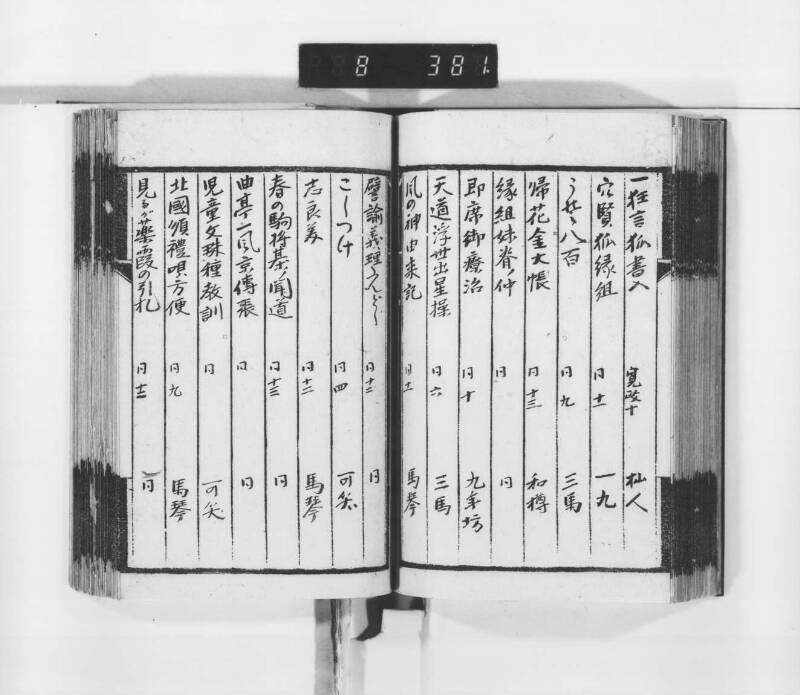 8 381
一狂言狐書入 寛政十 杣人
穴賢狐縁組 同十一 一九
うそ八百 同九 三馬
帰花金大帳 同十三 和樽
縁組妹脊ノ仲 同 同
即席御療治 同十 九年坊
天道浮世出星操 同六 三馬
風の神由来記 同十 馬琴
譬諭義理 同十二 同
こじつけ 同四 可笑
志良美 同十二 馬琴
春の駒将棊ノ聞道 同十三 同
曲亭一風京傳張 同 同
児童文珠稚教訓 同 可笑
北國順禮唄方便 同九 馬琴
見るが楽霞の引札 同十二 同